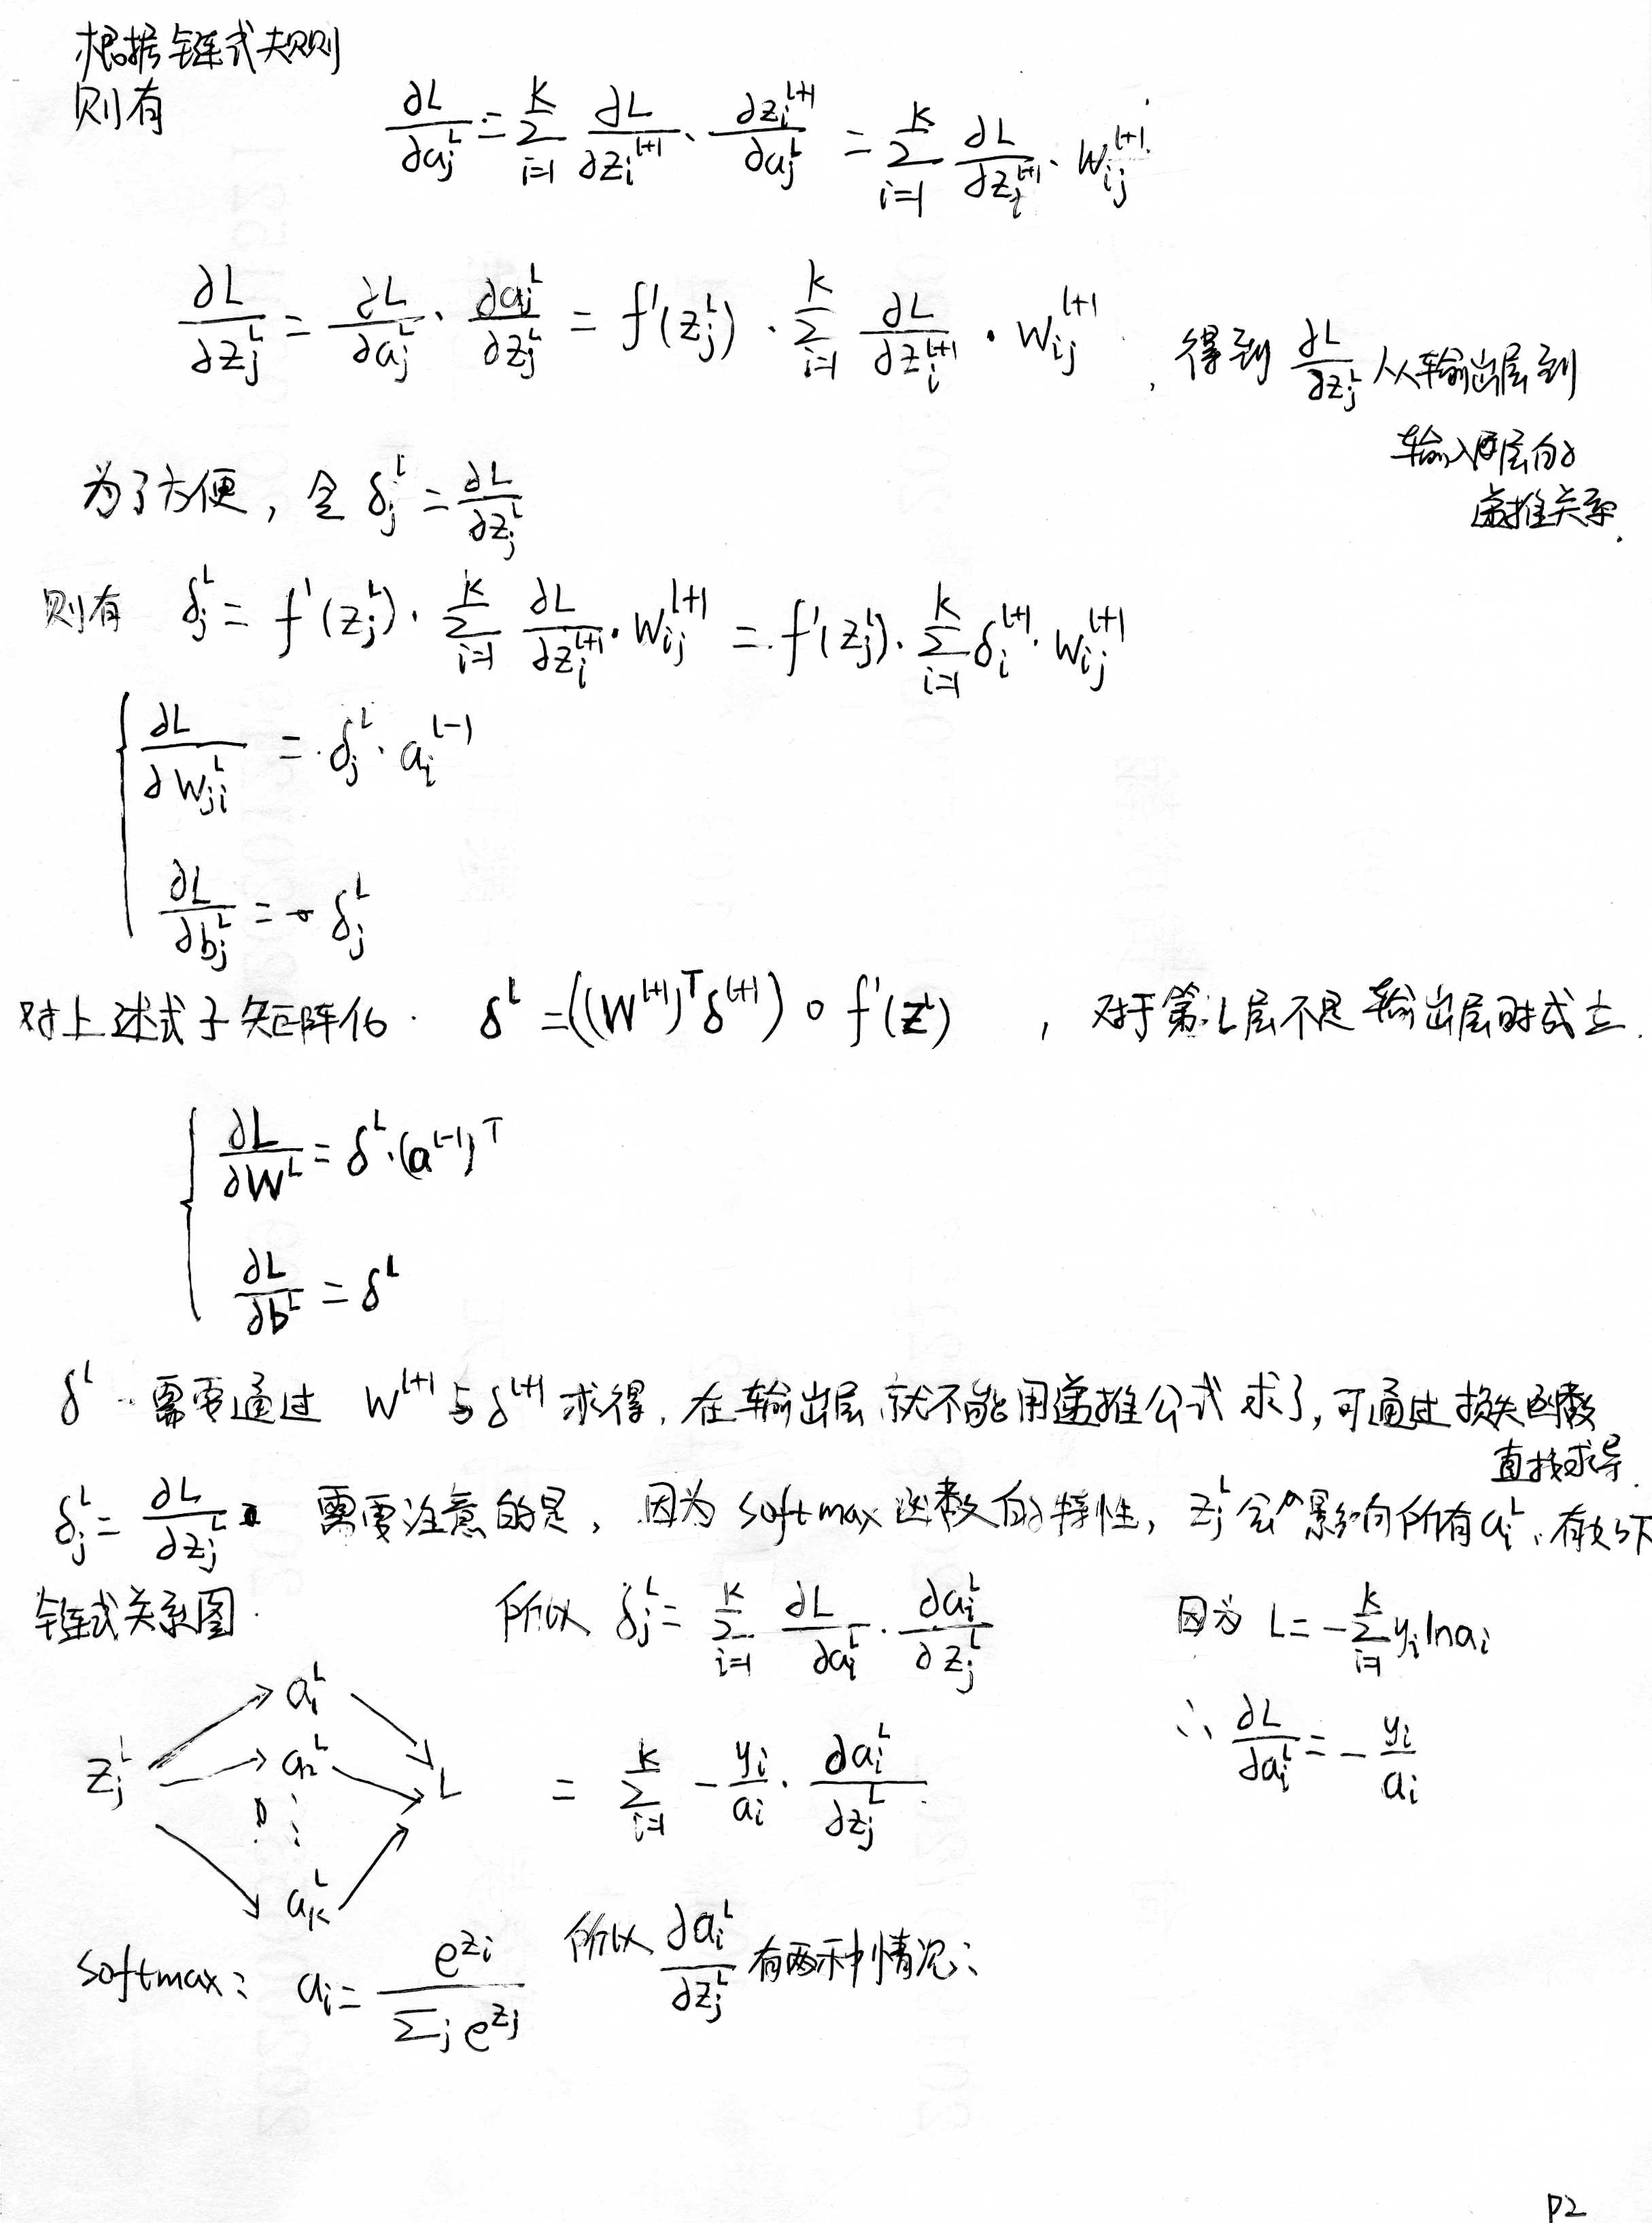 根据链式规则
则有
∂L/∂a_j^l = Σ_{i=1}^K ∂L/∂z_i^{l+1} · ∂z_i^{l+1}/∂a_j^l = Σ_{i=1}^K ∂L/∂z_i^{l+1} · W_{ij}^{l+1}
∂L/∂z_j^l = ∂L/∂a_j^l · ∂a_j^l/∂z_j^l = f'(z_j^l) · Σ_{i=1}^K ∂L/∂z_i^{l+1} · W_{ij}^{l+1} , 得到 ∂L/∂z_j^l 从输出层到
输入层的
递推关系.
为了方便, 令 δ_j^l = ∂L/∂z_j^l
则有 δ_j^l = f'(z_j^l) · Σ_{i=1}^K ∂L/∂z_i^{l+1} · W_{ij}^{l+1} = f'(z_j^l) · Σ_{i=1}^K δ_i^{l+1} · W_{ij}^{l+1}
∂L/∂W_{ji}^l = δ_j^l · a_i^{l-1}
∂L/∂b_j^l = δ_j^l
对上述式子矩阵化. δ^l = ((W^{l+1})^T δ^{l+1}) ∘ f'(z^l) , 对于第L层不是输出层时成立.
∂L/∂W^l = δ^l · (a^{l-1})^T
∂L/∂b^l = δ^l
δ^l 需要通过 W^{l+1} 与 δ^{l+1} 求得, 在输出层就不能用递推公式求了, 可通过损失函数
直接求导.
δ_j^L = ∂L/∂z_j^L 需要注意的是, 因为softmax函数的特性, z_j^L 会影响所有 a_i^L, 有如下
链式关系图.
所以 δ_j^L = Σ_{i=1}^K ∂L/∂a_i^L · ∂a_i^L/∂z_j^L
因为 L = -Σ_{i=1}^K y_i ln a_i
z_j^L
a_1^L
a_2^L
⋮
a_K^L
L
= Σ_{i=1}^K -y_i/a_i · ∂a_i^L/∂z_j^L
∴ ∂L/∂a_i^L = -y_i/a_i
softmax: a_i = e^{z_i}/Σ_j e^{z_j}
所以 ∂a_i^L/∂z_j^L 有两种情况:
P2